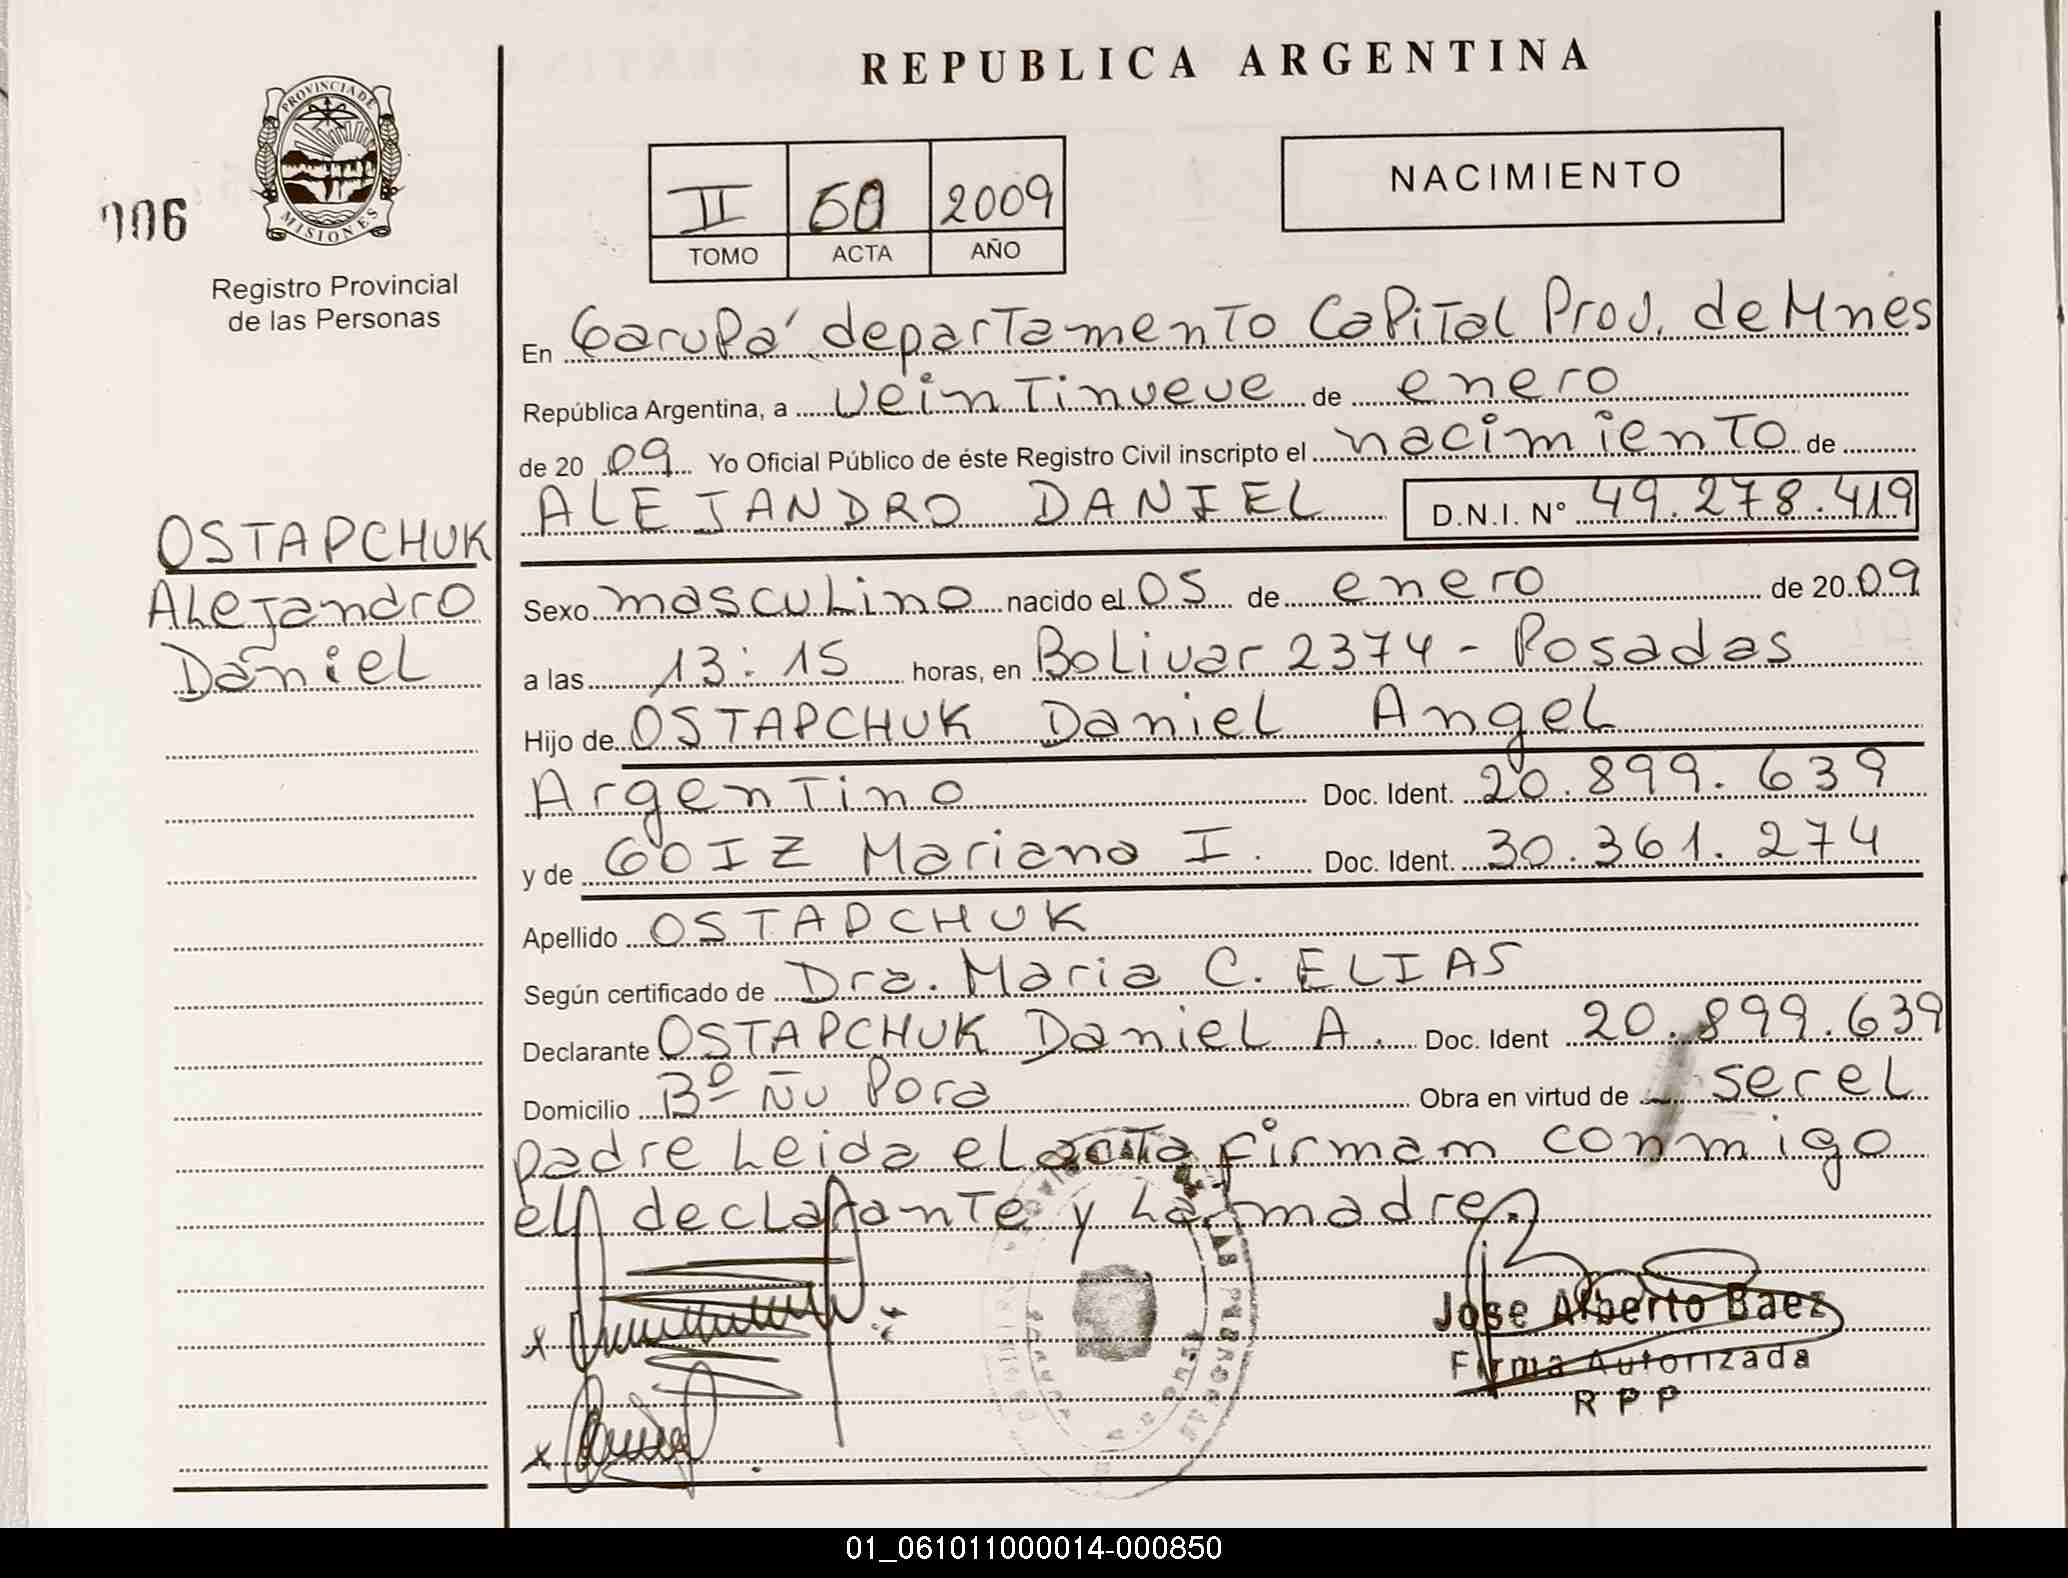 REPUBLICA ARGENTINA
PROVINCIA DE
MISIONES
006
Registro Provincial
de las Personas
II 60 2009
TOMO ACTA AÑO
NACIMIENTO
OSTAPCHUK
Alejandro
Daniel
En Garupa' departamento Capital Prov. de Mnes
República Argentina, a veintinueve de enero
de 20 09 Yo Oficial Público de éste Registro Civil inscripto el nacimiento de
ALEJANDRO DANIEL D.N.I. N° 49.278.419
Sexo masculino nacido el 05 de enero de 20 09
a las 13:15 horas, en Bolivar 2374 - Posadas
Hijo de OSTAPCHUK Daniel Angel
Argentino Doc. Ident. 20.899.639
y de GOIZ Mariana I. Doc. Ident. 30.361.274
Apellido OSTAPCHUK
Según certificado de Dra. Maria C. ELIAS
Declarante OSTAPCHUK Daniel A. Doc. Ident 20.899.639
Domicilio Bº Ñu Pora Obra en virtud de ser el
padre Leida el acta firmam conmigo
el declarante y La madre.
Jose Alberto Baez
Firma Autorizada
R P P
01_061011000014-000850